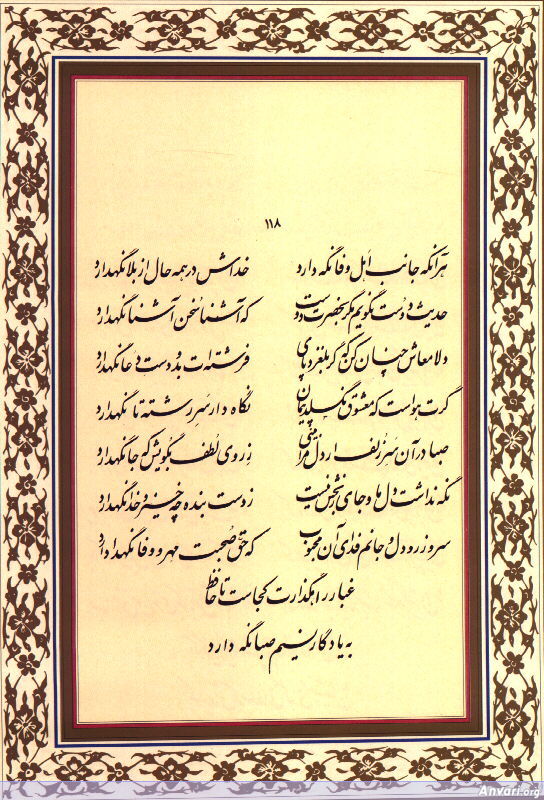 ۱۱۸
هر آنکه جانب اهل وفا نگه دارد خداش در همه حال از بلا نگهدارد
حدیث دوست نگویم مگر بحضرت دوست که آشنا سخن آشنا نگهدارد
دلا معاش چنان کن که گر بلغزد پای فرشته ات بدو دست دعا نگهدارد
گرت هواست که معشوق نگسلد پیمان نگاه دار سر رشته تا نگهدارد
صبا در آن سر زلف ار دل مرا بینی ز روی لطف بگویش که جا نگهدارد
نگه نداشت دل ما و جای رنجش نیست ز دست بنده چه خیزد خدا نگهدارد
سر و زر و دل و جانم فدای آن محبوب که حق صحبت مهر و وفا نگهدارد
غبار راهگذارت کجاست تا حافظ
به یادگار نسیم صبا نگه دارد
Anvari.org